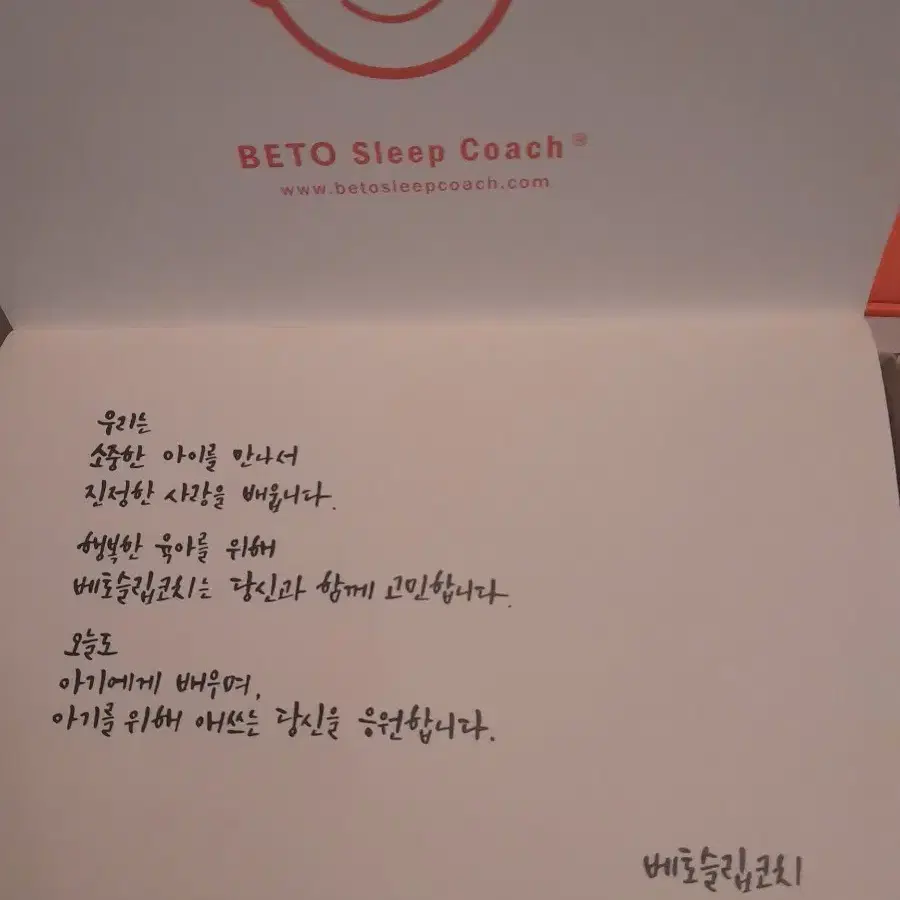 BETO Sleep Coach®
www.betosleepcoach.com
우리는
소중한 아이를 만나서
진정한 사랑을 배웁니다.
행복한 육아를 위해
베토슬립코치는 당신과 함께 고민합니다.
오늘도
아기에게 배우며,
아기를 위해 애쓰는 당신을 응원합니다.
베토슬립코치